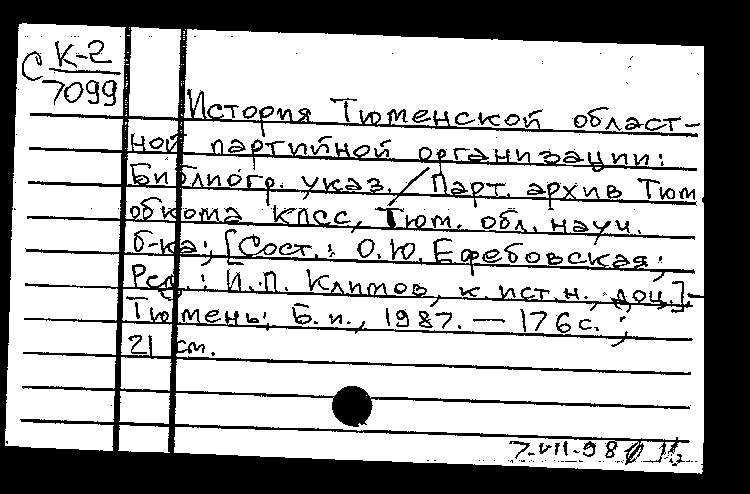 С К-2
7099
История Тюменской област-
ной партийной организации:
Библиогр. указ. / Парт. архив Тюм.
обкома КПСС, Тюм. обл. науч.
б-ка; [Сост.: О.Ю. Ефебовская;
Ред.: И.П. Климов, к.ист.н., доц.]-
Тюмень: Б.и., 1987. — 176 с.;
21 см.
7-VII-98